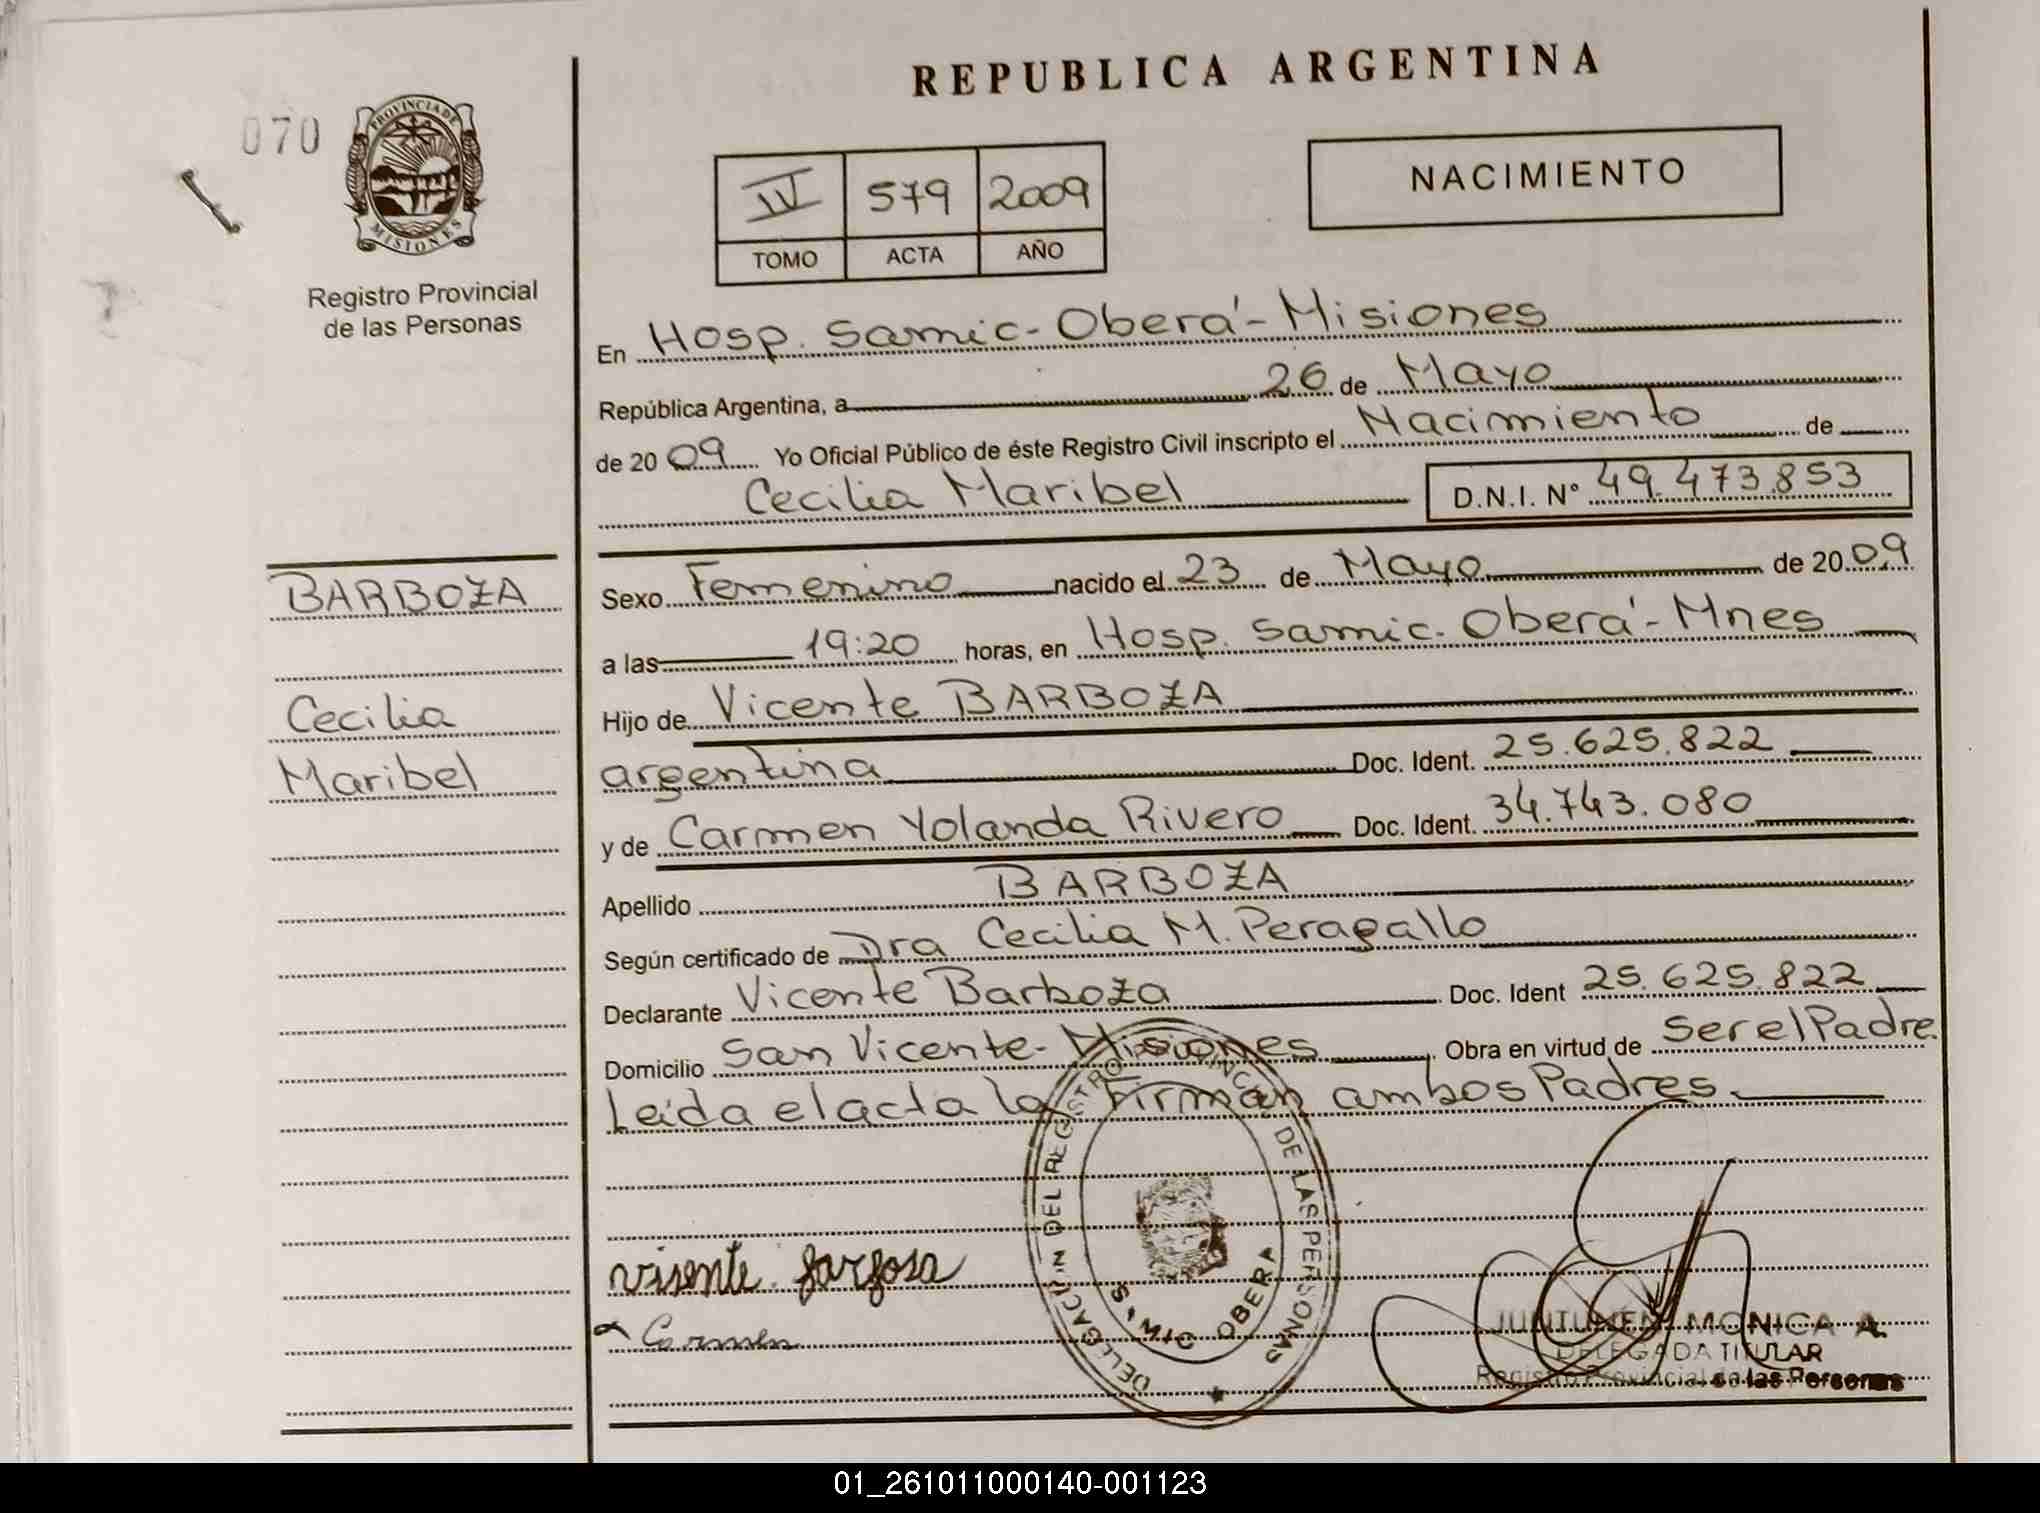 REPUBLICA ARGENTINA
070
PROVINCIA DE MISIONES
Registro Provincial
de las Personas
IV 579 2009
TOMO ACTA AÑO
NACIMIENTO
En Hosp. Samic - Oberá - Misiones
República Argentina, a 26 de Mayo
de 2009 Yo Oficial Público de éste Registro Civil inscripto el Nacimiento de
Cecilia Maribel D.N.I. N° 49.473.853
BARBOZA
Cecilia
Maribel
Sexo Femenino nacido el 23 de Mayo de 2009
a las 19:20 horas, en Hosp. Samic. Oberá - Mnes
Hijo de Vicente BARBOZA
argentina Doc. Ident. 25.625.822
y de Carmen Yolanda Rivero Doc. Ident. 34.743.080
Apellido BARBOZA
Según certificado de Dra Cecilia M. Peragallo
Declarante Vicente Barboza Doc. Ident 25.625.822
Domicilio San Vicente - Misiones Obra en virtud de ser el Padre
Leída el acta la Firman ambos Padres
DELEGACIÓN DEL REGISTRO PROVINCIAL DE LAS PERSONAS
SAMIC OBERA
visente
Carmen
MONICA A.
DELEGADA TITULAR
Registro Provincial de las Personas
01_261011000140-001123